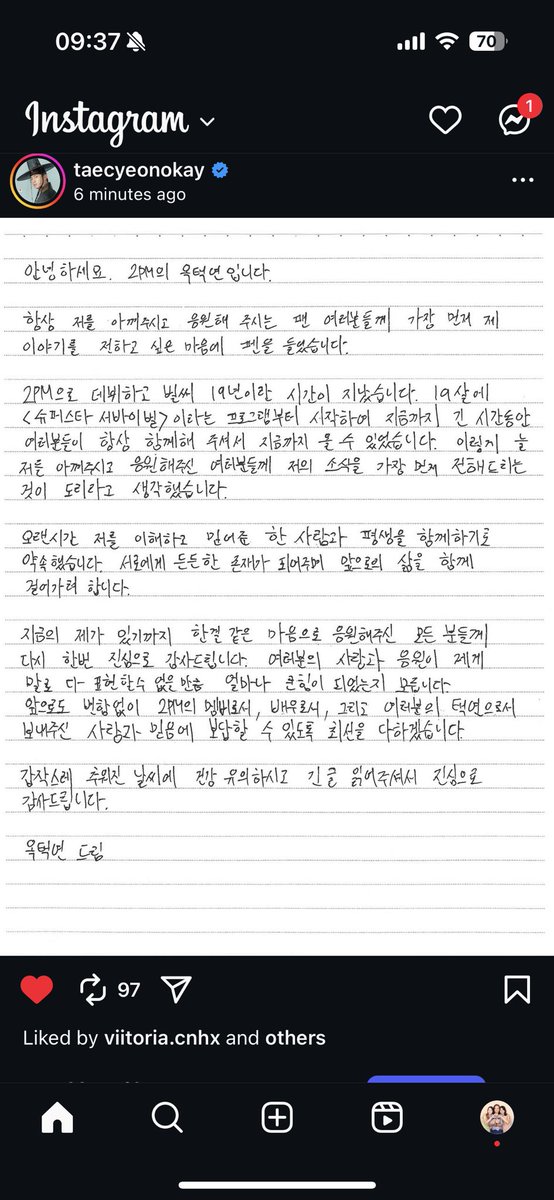 09:37
70
Instagram
1
taecyeonokay
6 minutes ago
안녕하세요. 2PM의 옥택연입니다.
항상 저를 아껴주시고 응원해 주시는 팬 여러분들께 가장 먼저 제
이야기를 전하고 싶은 마음에 펜을 들었습니다.
2PM으로 데뷔하고 벌써 19년이란 시간이 지났습니다. 19살에
<슈퍼스타 서바이벌>이라는 프로그램부터 시작하여 지금까지 긴 시간동안
여러분들이 항상 함께해 주셔서 지금까지 올 수 있었습니다. 이렇게 늘
저를 아껴주시고 응원해주신 여러분들께 저의 소식을 가장 먼저 전해드리는
것이 도리라고 생각했습니다.
오랜시간 저를 이해하고 믿어준 한 사람과 평생을 함께하기로
약속했습니다. 서로에게 든든한 존재가 되어주며 앞으로의 삶을 함께
걸어가려 합니다.
지금의 제가 있기까지 한결 같은 마음으로 응원해주신 모든 분들께
다시 한번 진심으로 감사드립니다. 여러분의 사랑과 응원이 제게
말로 다 표현할수 없을만큼 얼마나 큰힘이 되었는지 모릅니다.
앞으로도 변함없이 2PM의 멤버로서, 배우로서, 그리고 여러분의 택연으로서
보내주신 사랑과 믿음에 보답할 수 있도록 최선을 다하겠습니다.
갑작스레 추워진 날씨에 건강 유의하시고 긴글 읽어주셔서 진심으로
감사드립니다.
옥택연 드림
97
Liked by viitoria.cnhx and others